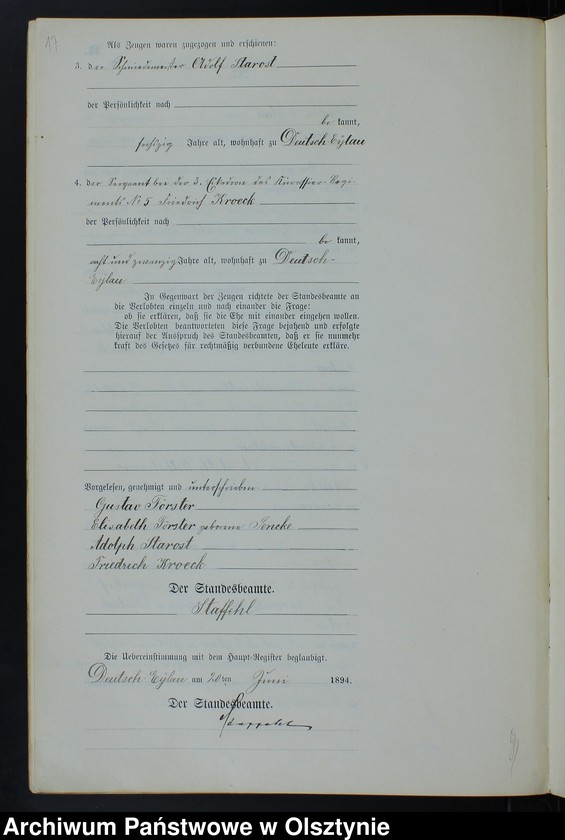 17
Als Zeugen waren zugezogen und erschienen:
3. der Schmiedemeister Adolf Starost
der Persönlichkeit nach
be kannt,
sechszig Jahre alt, wohnhaft zu Deutsch Eylau
4. der Sergeant bei der 3. Eskadron des Kürassier-Regi-
ments No 5 Friedrich Kroeck
der Persönlichkeit nach
be kannt,
acht und zwanzig Jahre alt, wohnhaft zu Deutsch-
Eylau
In Gegenwart der Zeugen richtete der Standesbeamte an
die Verlobten einzeln und nach einander die Frage:
ob sie erklären, daß sie die Ehe mit einander eingehen wollen.
Die Verlobten beantworteten diese Frage bejahend und erfolgte
hierauf der Ausspruch des Standesbeamten, daß er sie nunmehr
kraft des Gesetzes für rechtmäßig verbundene Eheleute erkläre.
Vorgelesen, genehmigt und unterschrieben
Gustav Förster
Elisabeth Förster geborene Jencke
Adolph Starost
Friedrich Kroeck
Der Standesbeamte.
Staffehl
Die Uebereinstimmung mit dem Haupt-Register beglaubigt.
Deutsch Eylau am 20ten Juni 1894.
Der Standesbeamte.
Staffehl
Archiwum Państwowe w Olsztynie